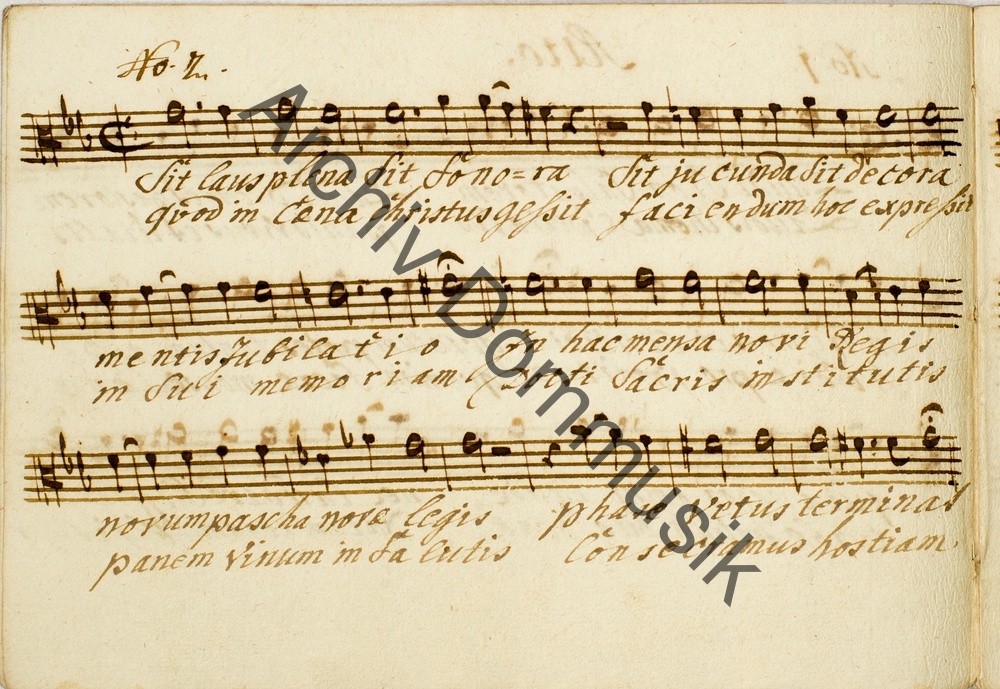 No. 2.
Sit laus plena sit sono=ra sit jucunda sit decora
quod in Cæna Christus geſsit faciendum hoc expreſsit
mentis Jubilatio In hac mensa novi Regis
in sui memoriam Docti Sacris institutis
novum pascha novæ legis phase vetus terminat
panem vinum in salutis Consecramus hostiam.
Archiv Dommusik